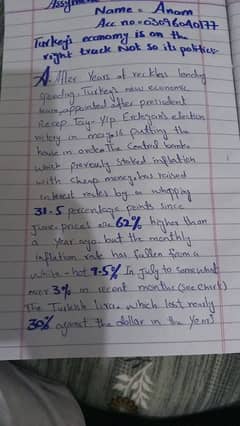 Assignm
Name = Anam
Acc no = 03096040177
Turkey's economy is on the
right track Not so its politics-
After Years of reckless lending
spending, Turkey's new economic
team, appointed after president
Recep Tay-yip Erdogan's election
victory in may, is putting the
house in order. The Central bank,
which previously stoked inflation
with cheap money, has raised
interest rates by a whopping
31.5 percentage points since
June. prices are 62% higher than
a year ago. but the monthly
inflation rate has fallen from a
white-hot 9.5% In July to somewhat
over 3% in recent months (see chart)
The Turkish Lira, which lost nearly
30% against the dollar in the year